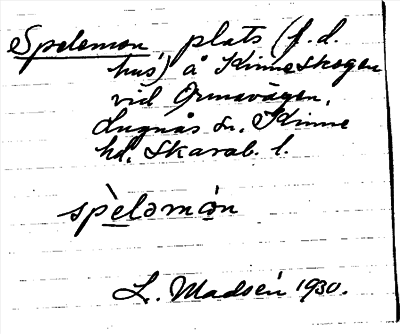 Spelemon, plats (f. d.
hus) å Kinneskogen
vid Ormavägen,
Lugnås sn, Kinne
hd. Skarab. l.
spèləmȯn
L. Madsén 1930.